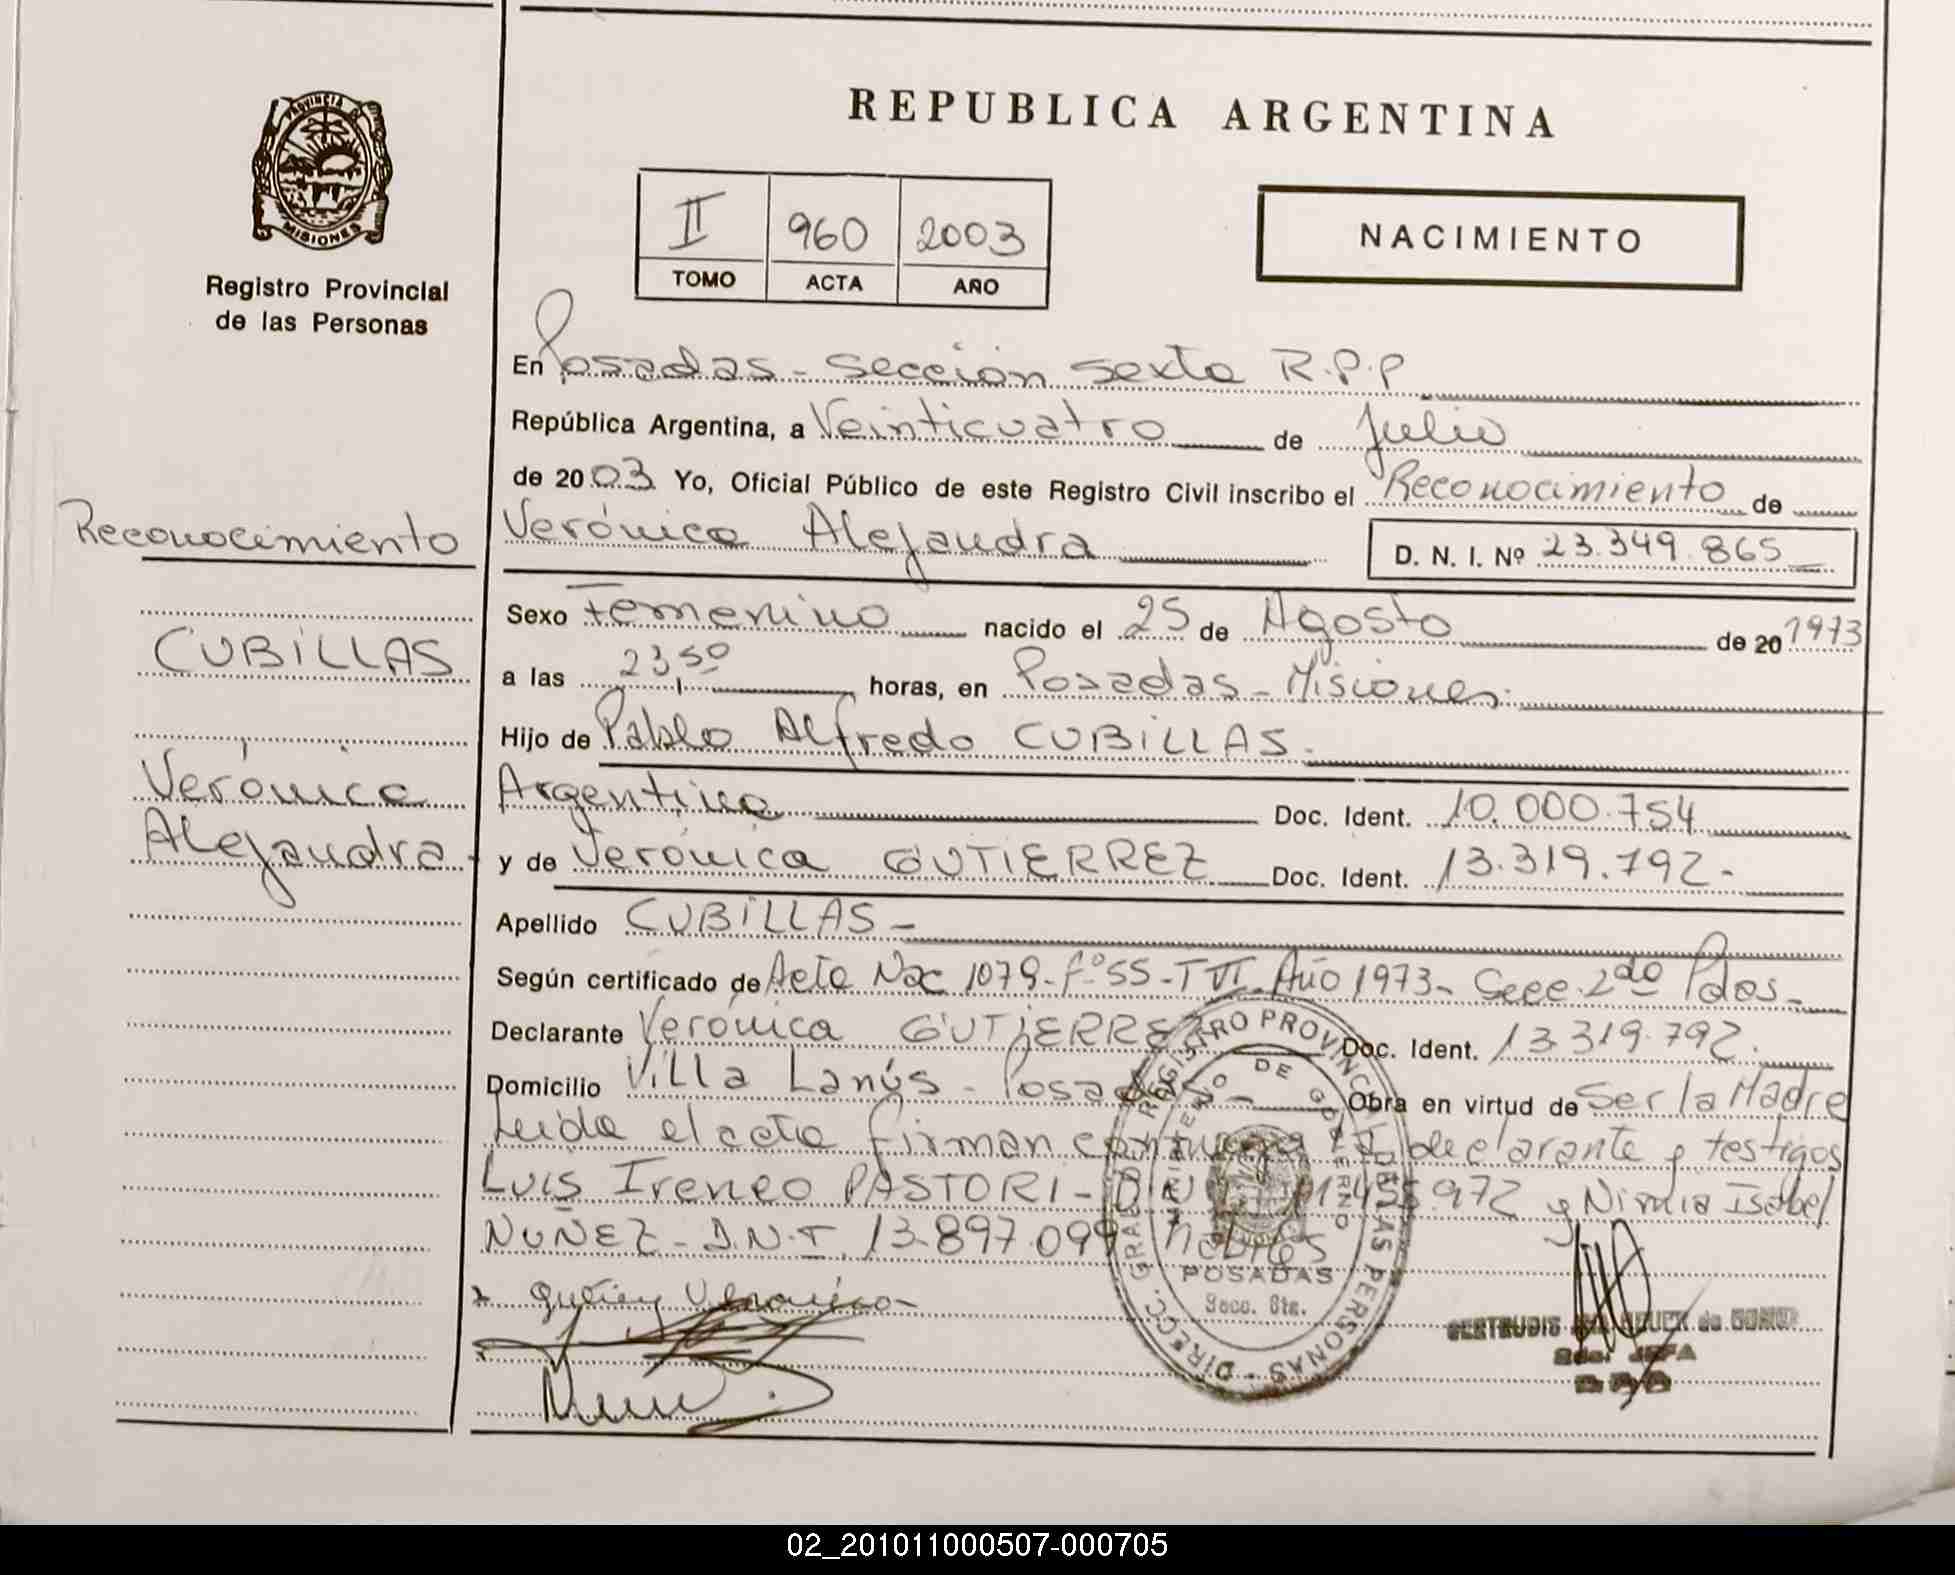 REPUBLICA ARGENTINA
PROVINCIA DE
MISIONES
Registro Provincial
de las Personas
II 960 2003
TOMO ACTA AÑO
NACIMIENTO
En Posadas - Sección Sexta R.P.P
República Argentina, a Veinticuatro de Julio
de 2003 Yo, Oficial Público de este Registro Civil inscribo el Reconocimiento de
Verónica Alejandra D. N. I. Nº 23.349.865
Reconocimiento
CUBILLAS
Verónica
Alejandra
Sexo Femenino nacido el 25 de Agosto de 20 1973
a las 23,50 horas, en Posadas - Misiones
Hijo de Pablo Alfredo CUBILLAS.
Argentino Doc. Ident. 10.000.754
y de Verónica GUTIERREZ Doc. Ident. 13.319.792.-
Apellido CUBILLAS -
Según certificado de Acta Nac 1079-fº55-T VI Año 1973- Secc. 2da Pdas.
Declarante Verónica GUTIERREZ Doc. Ident. 13.319.792.
Domicilio Villa Lanús - Posadas - Obra en virtud de Ser la Madre
Leída el acta firman conmigo la declarante y testigos
Luis Ireneo PASTORI - D.N.I. 455.972 y Nimia Isabel
NUÑEZ - D.N.I. 13.897.099 hábiles
Verónica
DIRECC. GRAL. DEL REGISTRO PROVINCIAL DE LAS PERSONAS
MINISTERIO DE GOBIERNO
POSADAS
Secc. 6ta.
GERTRUDIS de
JEFA
02_201011000507-000705